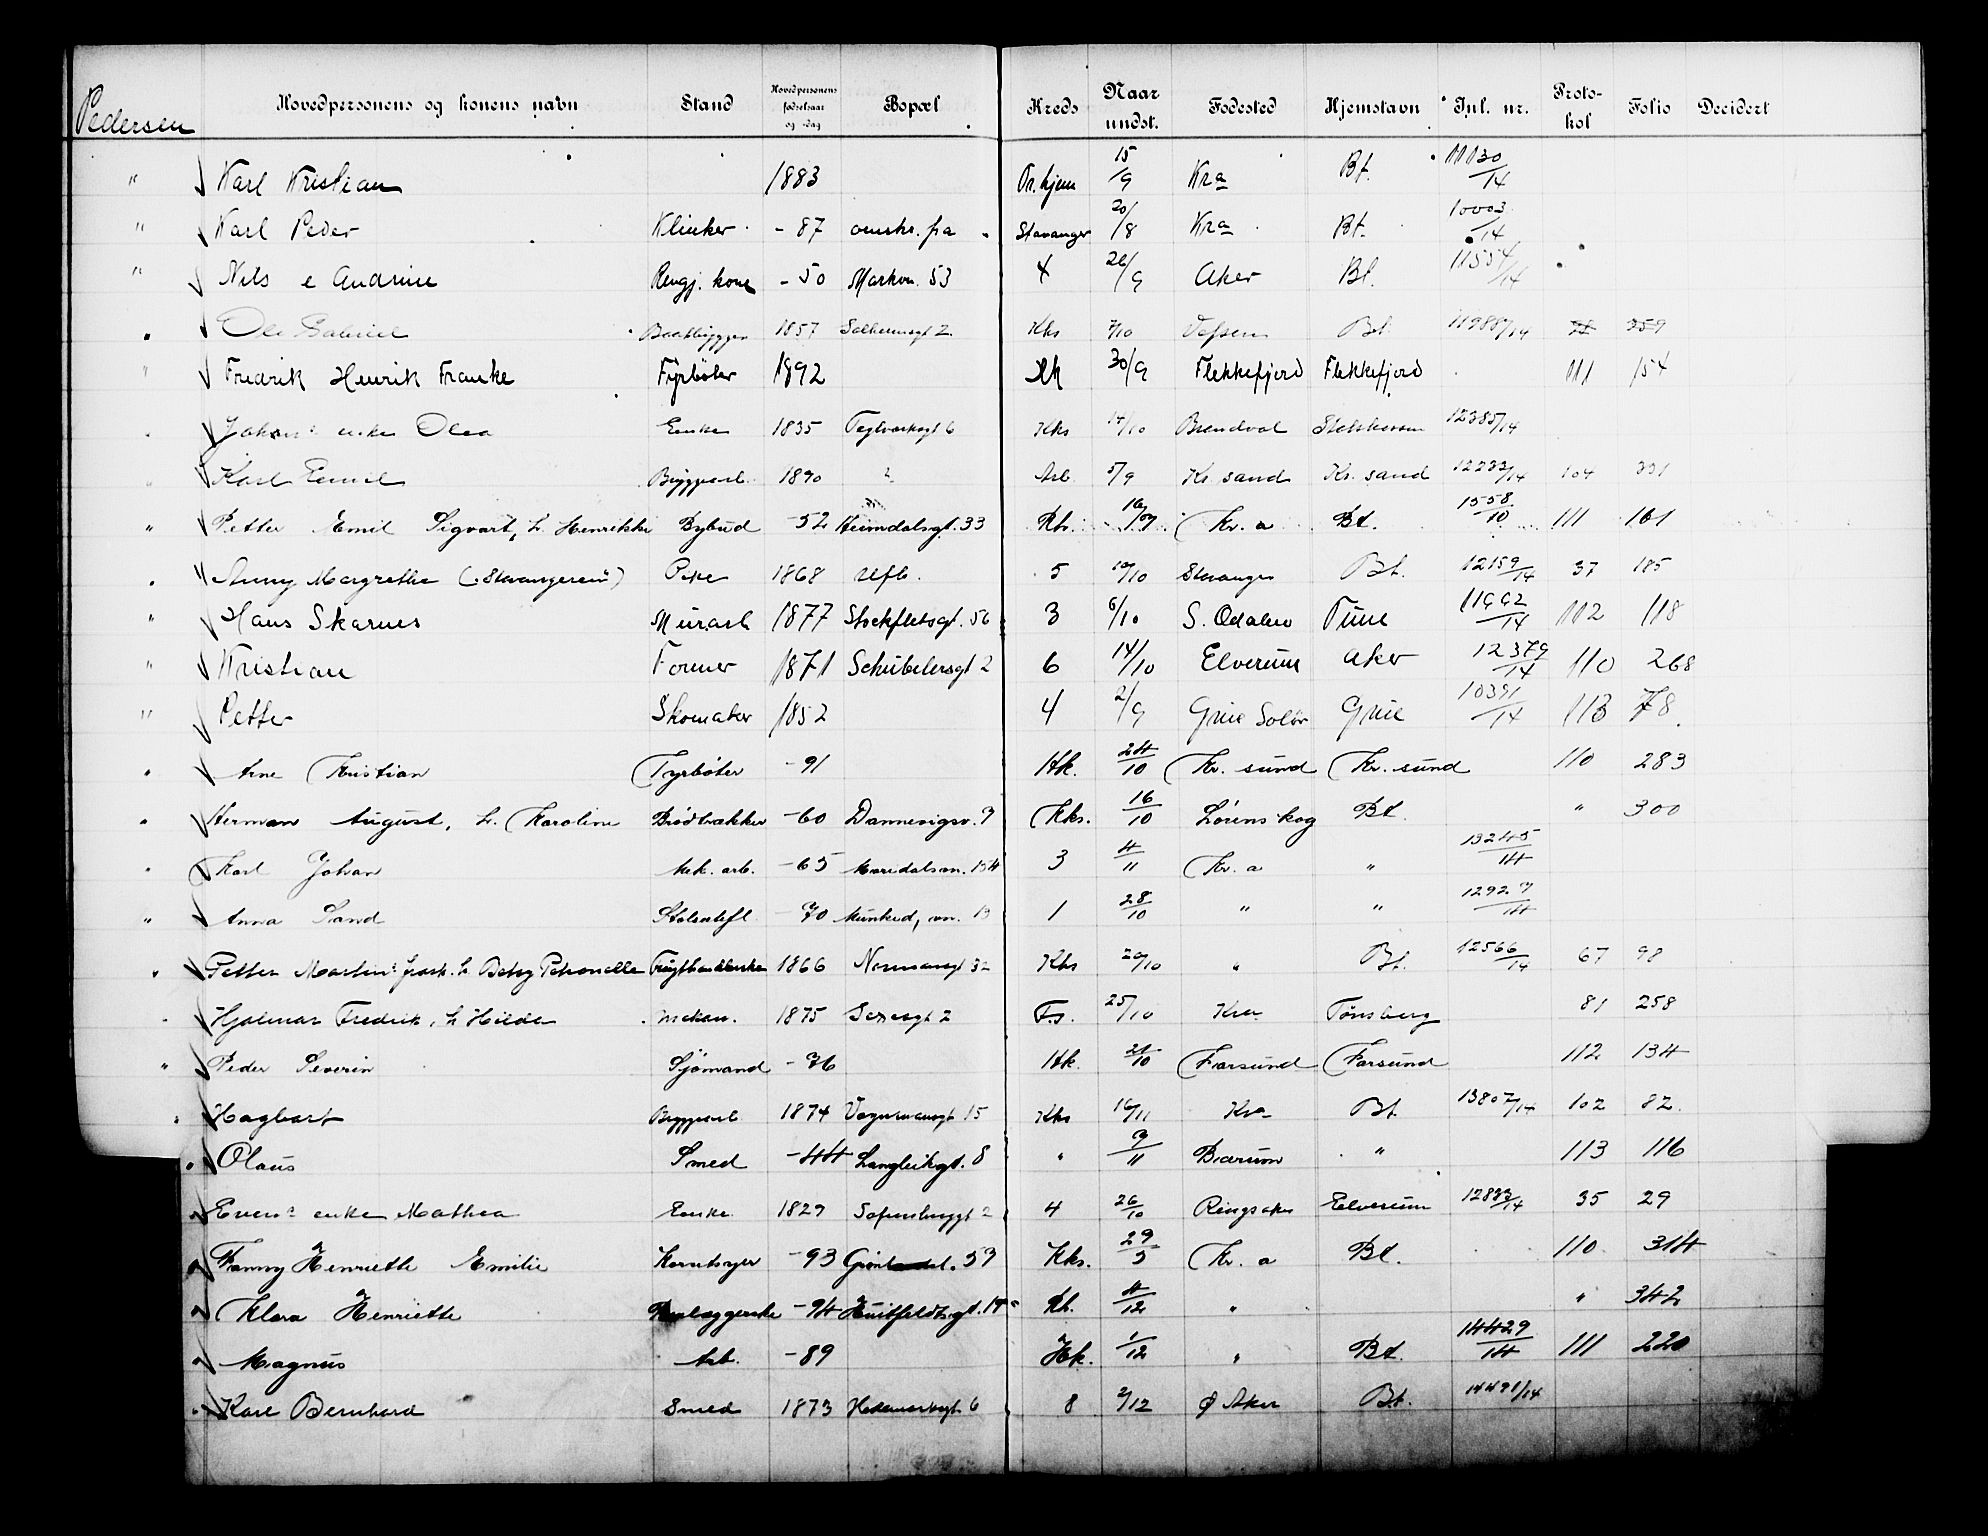 Pedersen Hovedpersonens og konens navn Stand Hovedpersonens fødselsaar og -dag Bopæl Kreds Naar undst. Fødested Hjemstavn Jnl. nr. Protokol Folio Decidert
" Karl Kristian 1883 Tr.hjem 15/9 Kra Bt. 11130/14
" Karl Peder Klinker - 87 omskr. fra Stavanger 20/8 Kra Bt. 10003/14
" Nils e Andrine Rengj. kone - 50 Markvn. 53 4 26/9 Aker Bt. 11554/14
" Ole Gabriel Baatbygger 1857 Solheimsgt 2 Kks 7/10 Vefsen Bt. 11988/14 259
" Fredrik Henrik Franke Fyrbøter 1892 Hk 30/9 Flekkefjord Flekkefjord 111 154
" Johans enke Olea Enke 1835 Teglverksgt 6 Kks 14/10 12385/14
" Karl Emil Bryggearb. 1890 ? Arb 5/9 Kr. sand Kr. sand 12232/14 104 331
" Petter Emil Sigvart, h. Henrikke Bybud -52 Heimdalsgt. 33 Kks. Kr. a Bt. 1558/10 111 161
" Anny Margrethe (Stavangerens) Pike 1868 Uflb. 5 10/10 Stavanger Bt. 12159/14 37 185
" Hans Skarnes Murarb 1877 Stockfletsgt. 56 3 6/10 S. Odalen Tune 11992/14 112 118
" Kristian Former 1871 Schübelersgt 2 6 14/10 Elverum Aker 12379/14 110 268
" Petter Skomaker 1852 4 2/9 Grue Solør Grue 10391/14 113 78
" Arne Kristian Fyrbøter -91 Hk. 24/10 Kr. sund Kr. sund 110 283
" Herman August, h. Karoline Brødtrækker -60 Dannevigsv. 9 Kks. 16/10 Lørenskog Bt. " 300
" Karl Johan Mek. arb. -65 Maridalsvn. 134 3 4/11 Kr. a " 13245/14
" Anna Sand -70 Munked. vn. 13 1 28/10 " " 12929/14
" Petter Martins frask. h. Betsy Petronelle Frugthandlerske 1866 Normansgt 32 Kks 20/10 " Bt. 12566/14 67 98
" Hjalmar Fredrik, h Hilda Mekan. 1875 2 F.s. 25/10 Kra Tønsberg 81 258
" Peder Severin Sjømand -76 Hk. 21/10 Farsund Farsund 112 134
" Hagbart Bryggearb 1874 15 Kks 16/11 Kra Bt. 13807/14 102 82
" Olaus Smed -44 Langleiksgt. 8 " 9/11 Bærum " 113 116
" Evens enke Mathea Enke 1829 Sofienberggt 2 4 26/10 Ringsaker Elverum 12833/14 35 29
" Fanny Henriette Emilie -93 Grønlandsl. 59 Kks. 29/5 Kr. a Bt. 110 314
" Klara Henriette -94 Huitfeldtsgt. 14 Kks. 4/12 " " 342
" Magnus Arb. -89 Hk. 1/12 " Bt. 14429/14 111 220
" Karl Bernhard Smed 1873 Hedemarksgt. 6 8 2/12 Ø Aker Bt. 14491/14